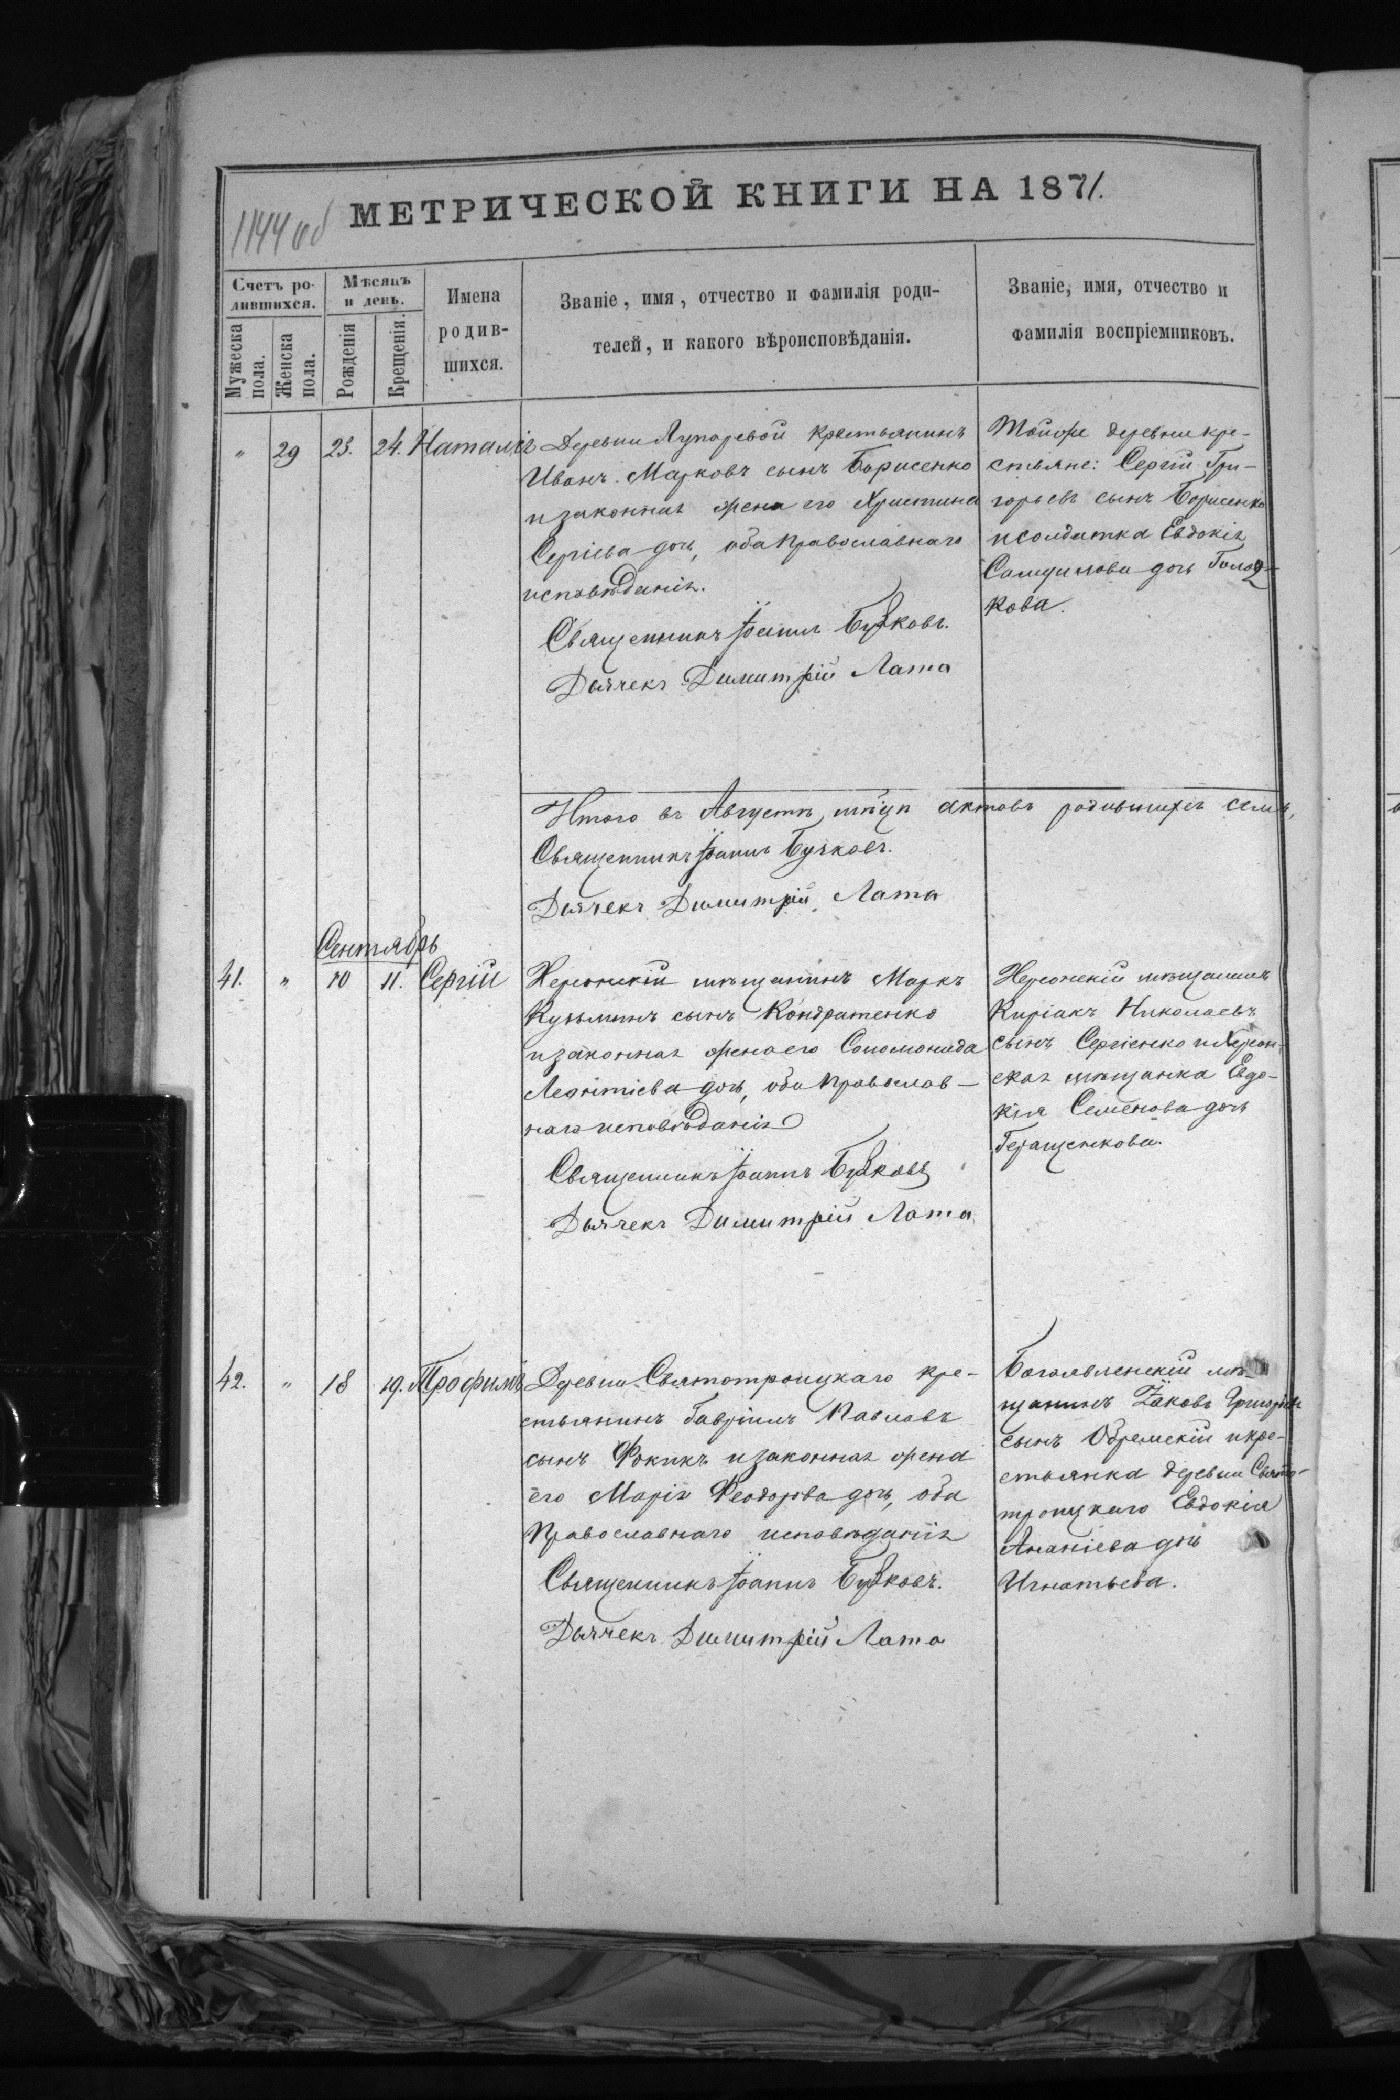 1144 об
МЕТРИЧЕСКОЙ КНИГИ НА 1871.
Счетъ ро-
дившихся.
Мужеска
пола.
Женска
пола.
Мѣсяцъ
и день.
Рожденія
Крещенія.
Имена
родив-
шихся.
Званіе, имя, отчество и фамилія роди-
телей, и какого вѣроисповѣданія.
Званіе, имя, отчество и
фамилія воспріемниковъ.
" 29 23. 24. Наталія
Деревни Лупаревой крестьянинъ
Иванъ Марковъ сынъ Борисенко
и законная жена его Христина
Сергіева дочь, оба Православнаго
исповѣданія.
Священникъ Іоаннъ Бучковъ.
Дьячекъ Димитрій Лата
Тойже деревни кре-
стьяне: Сергій Гри-
горьевъ сынъ Борисенко
и солдатка Евдокія
дочь
кова.
Итого въ Августѣ мѣсяцѣ актовъ родившихся семь,
Священникъ Іоаннъ Бучковъ.
Дьячекъ Димитрій Лата
Сентябрь
41. " 10 11. Сергій
Херсонскій мѣщанинъ Маркъ
Кузьминъ сынъ Кондратенко
и законная жена его Соломонида
Леонтіева дочь, оба Православ-
наго исповѣданія
Священникъ Іоаннъ Бучковъ
Дьячекъ Димитрій Лата
Херсонскій мѣщанинъ
Киріакъ Николаевъ
сынъ Сергіенко и Херсон-
ская мѣщанка Евдо-
кія Семенова дочь
Геращенкова.
42. " 18 19. Трофимъ
Деревни Святотроицкаго кре-
стьянинъ Гавріилъ Павловъ
сынъ и законная жена
его Марія Феодорова дочь, оба
Православнаго исповѣданія
Священникъ Іоаннъ Бучковъ.
Дьячекъ Димитрій Лата
Богоявленскій мѣ-
щанинъ Іаковъ Григорьевъ
сынъ и кре-
стьянка деревни Свято-
троицкаго Евдокія
Ананіева дочь
Игнатьева.